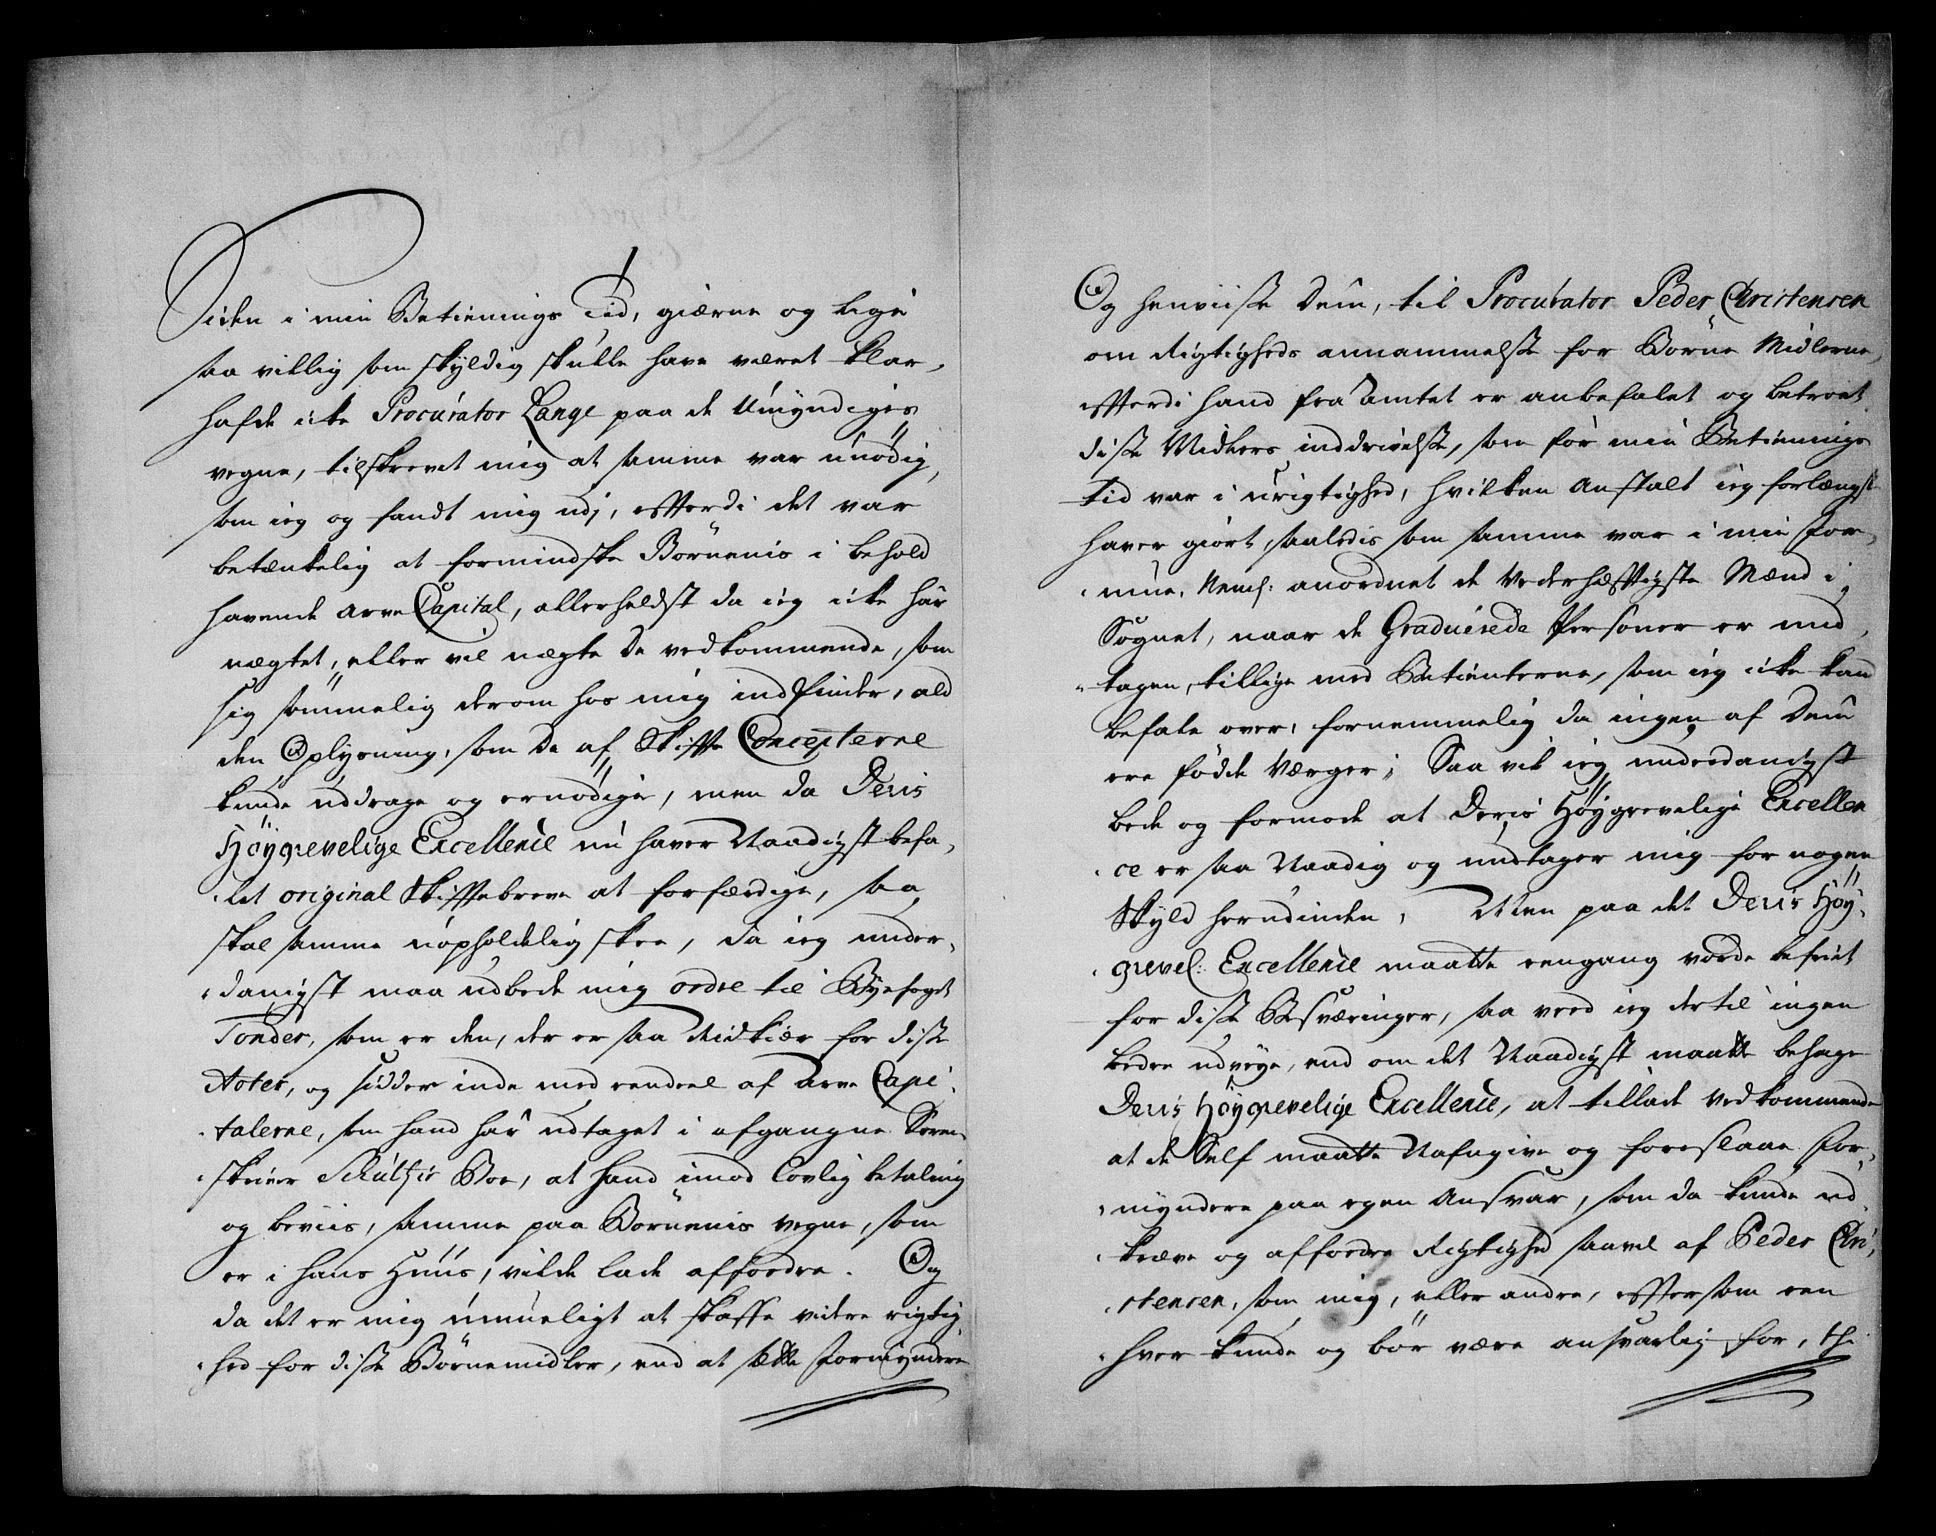 Siden i min Betiennings Tid, giærne og lige
saa villig som skyldig skulle have været klar,
hafde icke Procurator Lange paa de Umyndiges
vegne, tilskrevet mig at samme var unødig,
som ieg og fandt mig udj, efterdi det var
betænkelig at formindske Börnenis i behold
havende arve Capital, allerheldst da ieg icke har
nægtet, eller vil nægte de vedkommende, som
sig sømmelig derom hos mig indfinder, ald
den Oplysning, som de af Skifte Concepterne
kunde uddrage og ernødige, men da Deris
Høygrevelige Excellence nu haver Naadigst befa-
let original Skiftebreve at forfærdige, saa
skal samme uopholdelig skee, da ieg under-
danigst maa udbede mig ordre til Byefoget
Tonder, som er den, der er saa Nidkiær for disse
Acter, og sidder inde med eendeel af arve Capi-
talerne, som hand har udtaget i afgangne Soren-
skriver Schültzis Boe, at hand imod Lovlig betaling
og beviis, samme paa Börnenis vegne, som
er i hans Huus, vilde lade affordre. Og
da det er mig umueligt at skaffe videre rigtig-
hed for disse Börnemidler, end at sætte Formyndere
Og henviisse dem, til Procurator Peder Christensen
om Rigtigheds annammelse for Börne Midlerne,
efterdi hand fra Amtet er anbefalet og betroet
disse Midlers inddrivelse, som før min Betiennings
tid var i urigtighed, hvilken Anstalt ieg forlængst
haver giort, saaledis som samme var i min For-
mue, Neml: anordnet de Vederhæftigste Mænd i
Sognet, naar de Graduerede Personer er und-
tagen, tillige med Betienterne, som ieg icke kand
befale over, fornemmelig da ingen af dem
ere födde Værger; Saa vil ieg underdanigst
bede og formode at Deris Høygrevelige Excellen-
ce er saa Naadig og undtager mig for nogen
Skyld herudinden, Men paa det Deris Høy-
grevel: Excellence maatte eengang vorde befriet
for disse Besværinger, saa veed ieg dertil ingen
bedre udveye, end om det Naadigst maatte behage
Deris Høygrevelige Excellence, at tillade vedkommende
at de Self maatte Nafngive og foreslaae For-
myndere paa egen Ansvar, som da kunde ud-
kræve og affordre Rigtighed saavel af Peder Chri-
stensen, som mig, eller andre, eftersom een
hver kunde og bör være ansvarlig for, thi